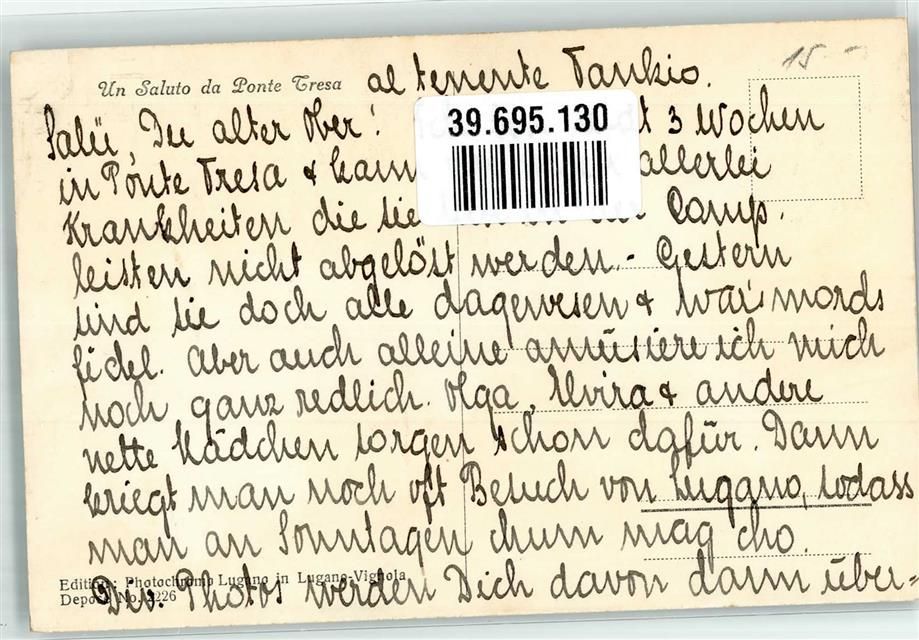 15.-
Un Saluto da Ponte Tresa al tenente Tankio.
Salü, Du alter Ober! 3 Wochen
39.695.130
in Ponte Tresa & kann allerlei
Krankheiten die sie Camp.
leisten nicht abgelöst werden.- Gestern
sind sie doch alle dagewesen & war's mords
fidel. Aber auch alleine amüsiere ich mich
noch ganz redlich. Olga, Elvira & andere
nette Mädchen sorgen schon dafür. Dann
kriegt man noch oft Besuch von Lugano, sodass
man an Sonntagen chum mag cho.
Edition: Photochromo Lugano in Lugano-Vignola
Div. Photos werden Dich davon dann über=
Depose No. 2226